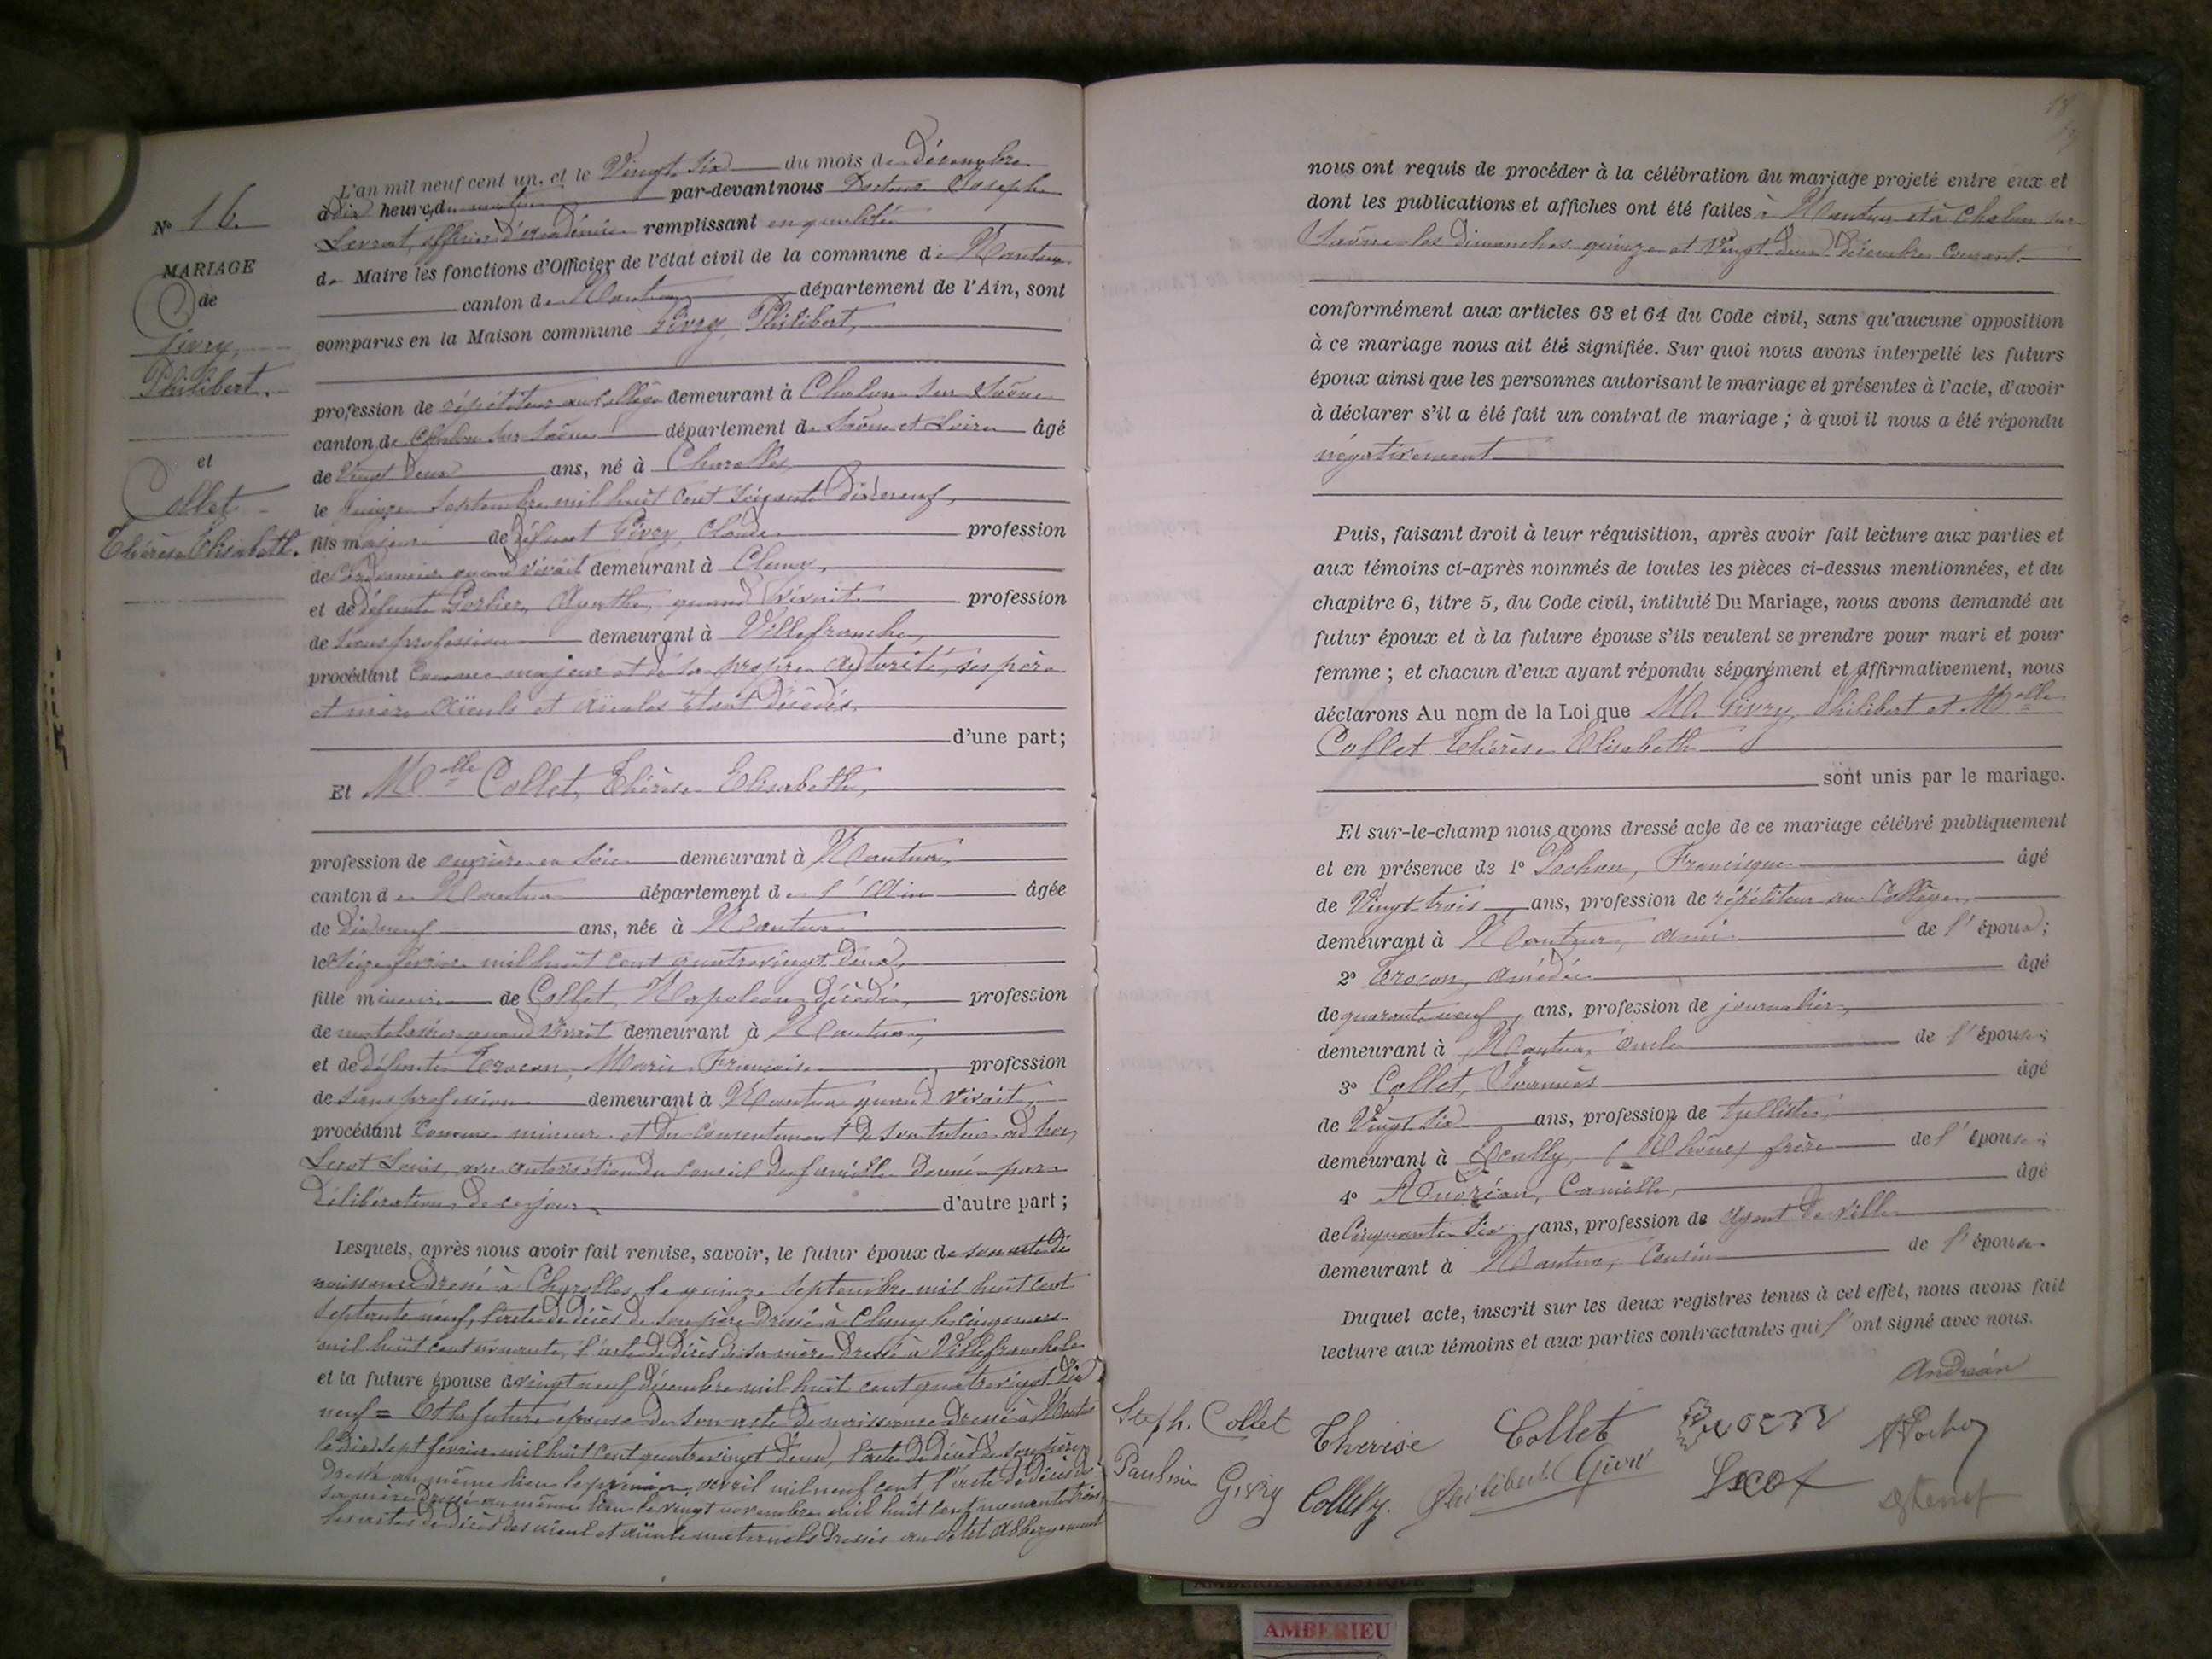 N° 16.
MARIAGE
de
Givry,
Philibert.
et
Collet
Thérèse Elisabeth.
L'an mil neuf cent un, et le Vingt six du mois de Décembre
à dix heures du matin par-devant nous Docteur Joseph
Levrat, officier d'académie remplissant en qualité
de Maire les fonctions d'Officier de l'état civil de la commune de Nantua
canton de Nantua département de l'Ain, sont
comparus en la Maison commune Givry, Philibert,
profession de répétiteur au Collège demeurant à Chalon sur Saône
canton de Chalon sur Saône département de Saône et Loire âgé
de Vingt deux ans, né à Charolles,
le quinze Septembre mil huit cent soixante dix neuf,
fils majeur de défunt Givry, Claude profession
de Cordonnier quand vivait demeurant à Cluny,
et de défunte Gorlier, Agathe, quand vivait profession
de sans profession demeurant à Villefranche,
procédant Comme majeur et de sa propre autorité, ses père
et mère aïeuls et aïeules étant décédés.
d'une part;
Et Melle Collet, Thérèse Elisabeth,
profession de ouvrière en soie demeurant à Nantua,
canton de Nantua département de l'Ain âgée
de Dix neuf ans, née à Nantua
le Seize février mil huit cent quatre vingt deux,
fille mineure de Collet, Napoléon décédé, profession
de matelassier quand vivait demeurant à Nantua,
et de défunte Tracon, Marie Françoise profession
de sans profession demeurant à Nantua quand vivait,
procédant Comme mineure et du consentement de son tuteur ad hoc,
Louis, avec autorisation du Conseil de famille donnée par
Délibération de ce jour d'autre part;
Lesquels, après nous avoir fait remise, savoir, le futur époux de son acte de
naissance dressé à Charolles, le quinze Septembre mil huit cent
septante neuf, l'acte de décès de son père dressé à Cluny le cinq mars
mil huit cent nonante, l'acte de décès de sa mère dressé à Villefranche le
et la future épouse d vingt neuf décembre mil huit cent quatre vingt dix
neuf = Et la future épouse de son acte de naissance dressé à Nantua
le dix sept février mil huit cent quatre vingt deux, l'acte de décès de son père
dressé au même lieu le premier avril mil neuf cent, l'acte de décès de
sa mère dressé au même lieu le vingt novembre mil huit cent nonante trois,
les actes de décès des aïeul et aïeule maternels dressés au Petit Abbergement
18
nous ont requis de procéder à la célébration du mariage projeté entre eux et
dont les publications et affiches ont été faites à Nantua et à Chalon sur
Saône les dimanches quinze et vingt deux Décembre courant.
conformément aux articles 63 et 64 du Code civil, sans qu'aucune opposition
à ce mariage nous ait été signifiée. Sur quoi nous avons interpellé les futurs
époux ainsi que les personnes autorisant le mariage et présentes à l'acte, d'avoir
à déclarer s'il a été fait un contrat de mariage ; à quoi il nous a été répondu
négativement
Puis, faisant droit à leur réquisition, après avoir fait lecture aux parties et
aux témoins ci-après nommés de toutes les pièces ci-dessus mentionnées, et du
chapitre 6, titre 5, du Code civil, intitulé Du Mariage, nous avons demandé au
futur époux et à la future épouse s'ils veulent se prendre pour mari et pour
femme ; et chacun d'eux ayant répondu séparément et affirmativement, nous
déclarons Au nom de la Loi que M. Givry, Philibert et Melle
Collet Thérèse Elisabeth
sont unis par le mariage.
Et sur-le-champ nous avons dressé acte de ce mariage célébré publiquement
et en présence de 1° Pochon, Francisque âgé
de Vingt trois ans, profession de répétiteur au Collège,
demeurant à Nantua, ami de l'époux;
2° Tracon, Amédée âgé
de quarante neuf, ans, profession de journalier,
demeurant à Nantua, oncle de l'épouse;
3° Collet, Joannès âgé
de Vingt six ans, profession de tulliste,
demeurant à Ecully, (Rhône) frère de l'épouse;
4° Andréan, Camille, âgé
de Cinquante six, ans, profession de agent de ville
demeurant à Nantua, Cousin de l'épouse
Duquel acte, inscrit sur les deux registres tenus à cet effet, nous avons fait
lecture aux témoins et aux parties contractantes qui l'ont signé avec nous.
Andréan
Steph. Collet
Thérèse Collet
Pauline Givry
Collet J.
Philibert Givry
AMBERIEU